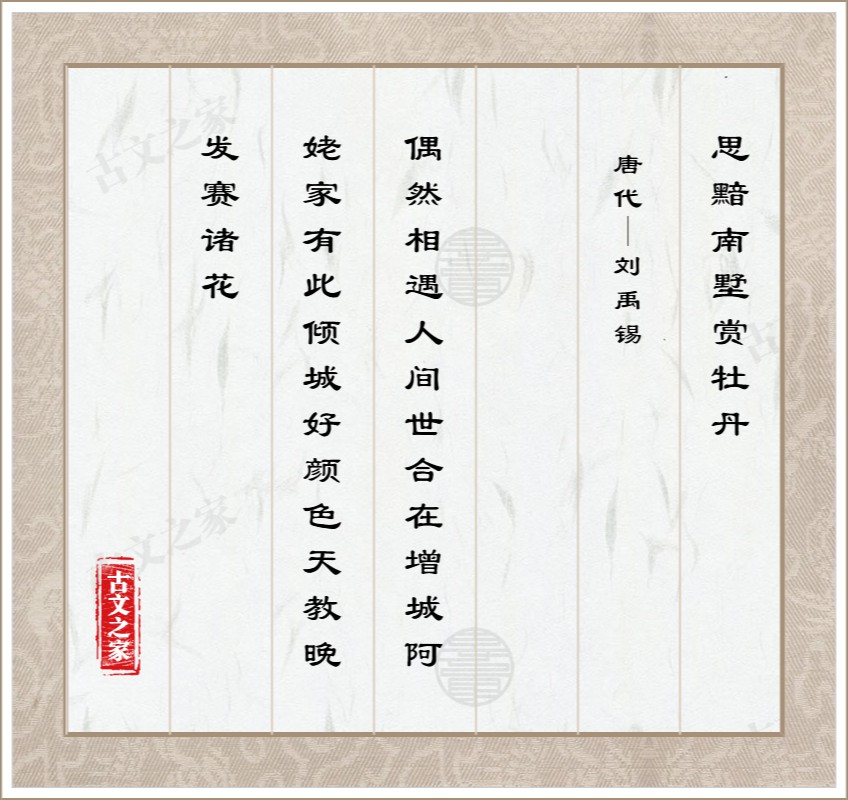 思黯南墅赏牡丹
唐代—刘禹锡
偶然相遇人间世合在增城阿
姥家有此倾城好颜色天教晚
发赛诸花
古文之家
古文之家
古文之家
古文之家